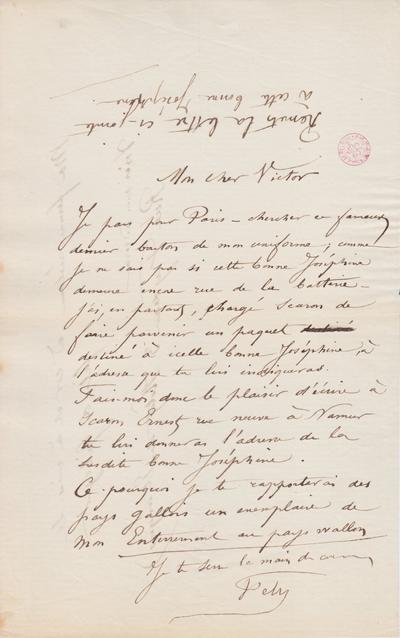 Remets la lettre ci-jointe
à cette bonne Joséphine
Mon cher Victor
Je pars pour Paris – chercher ce fameux
dernier bouton de mon uniforme ; comme
je ne sais pas si cette bonne Joséphine
demeure encore rue de la batterie –
j'ai, en partant, chargé Scaron de
faire parvenir un paquet
destiné à cette bonne Joséphine, à
l'adresse que tu lui indiqueras.
Fais-moi donc le plaisir d'écrire à
Scaron Ernest rue neuve à Namur
tu lui donneras l'adresse de la
susdite bonne Joséphine.
Ce pourquoi je te rapporterai des
pays gallois un exemplaire de
mon Enterrement au pays wallon
Je te serre la main de cœur